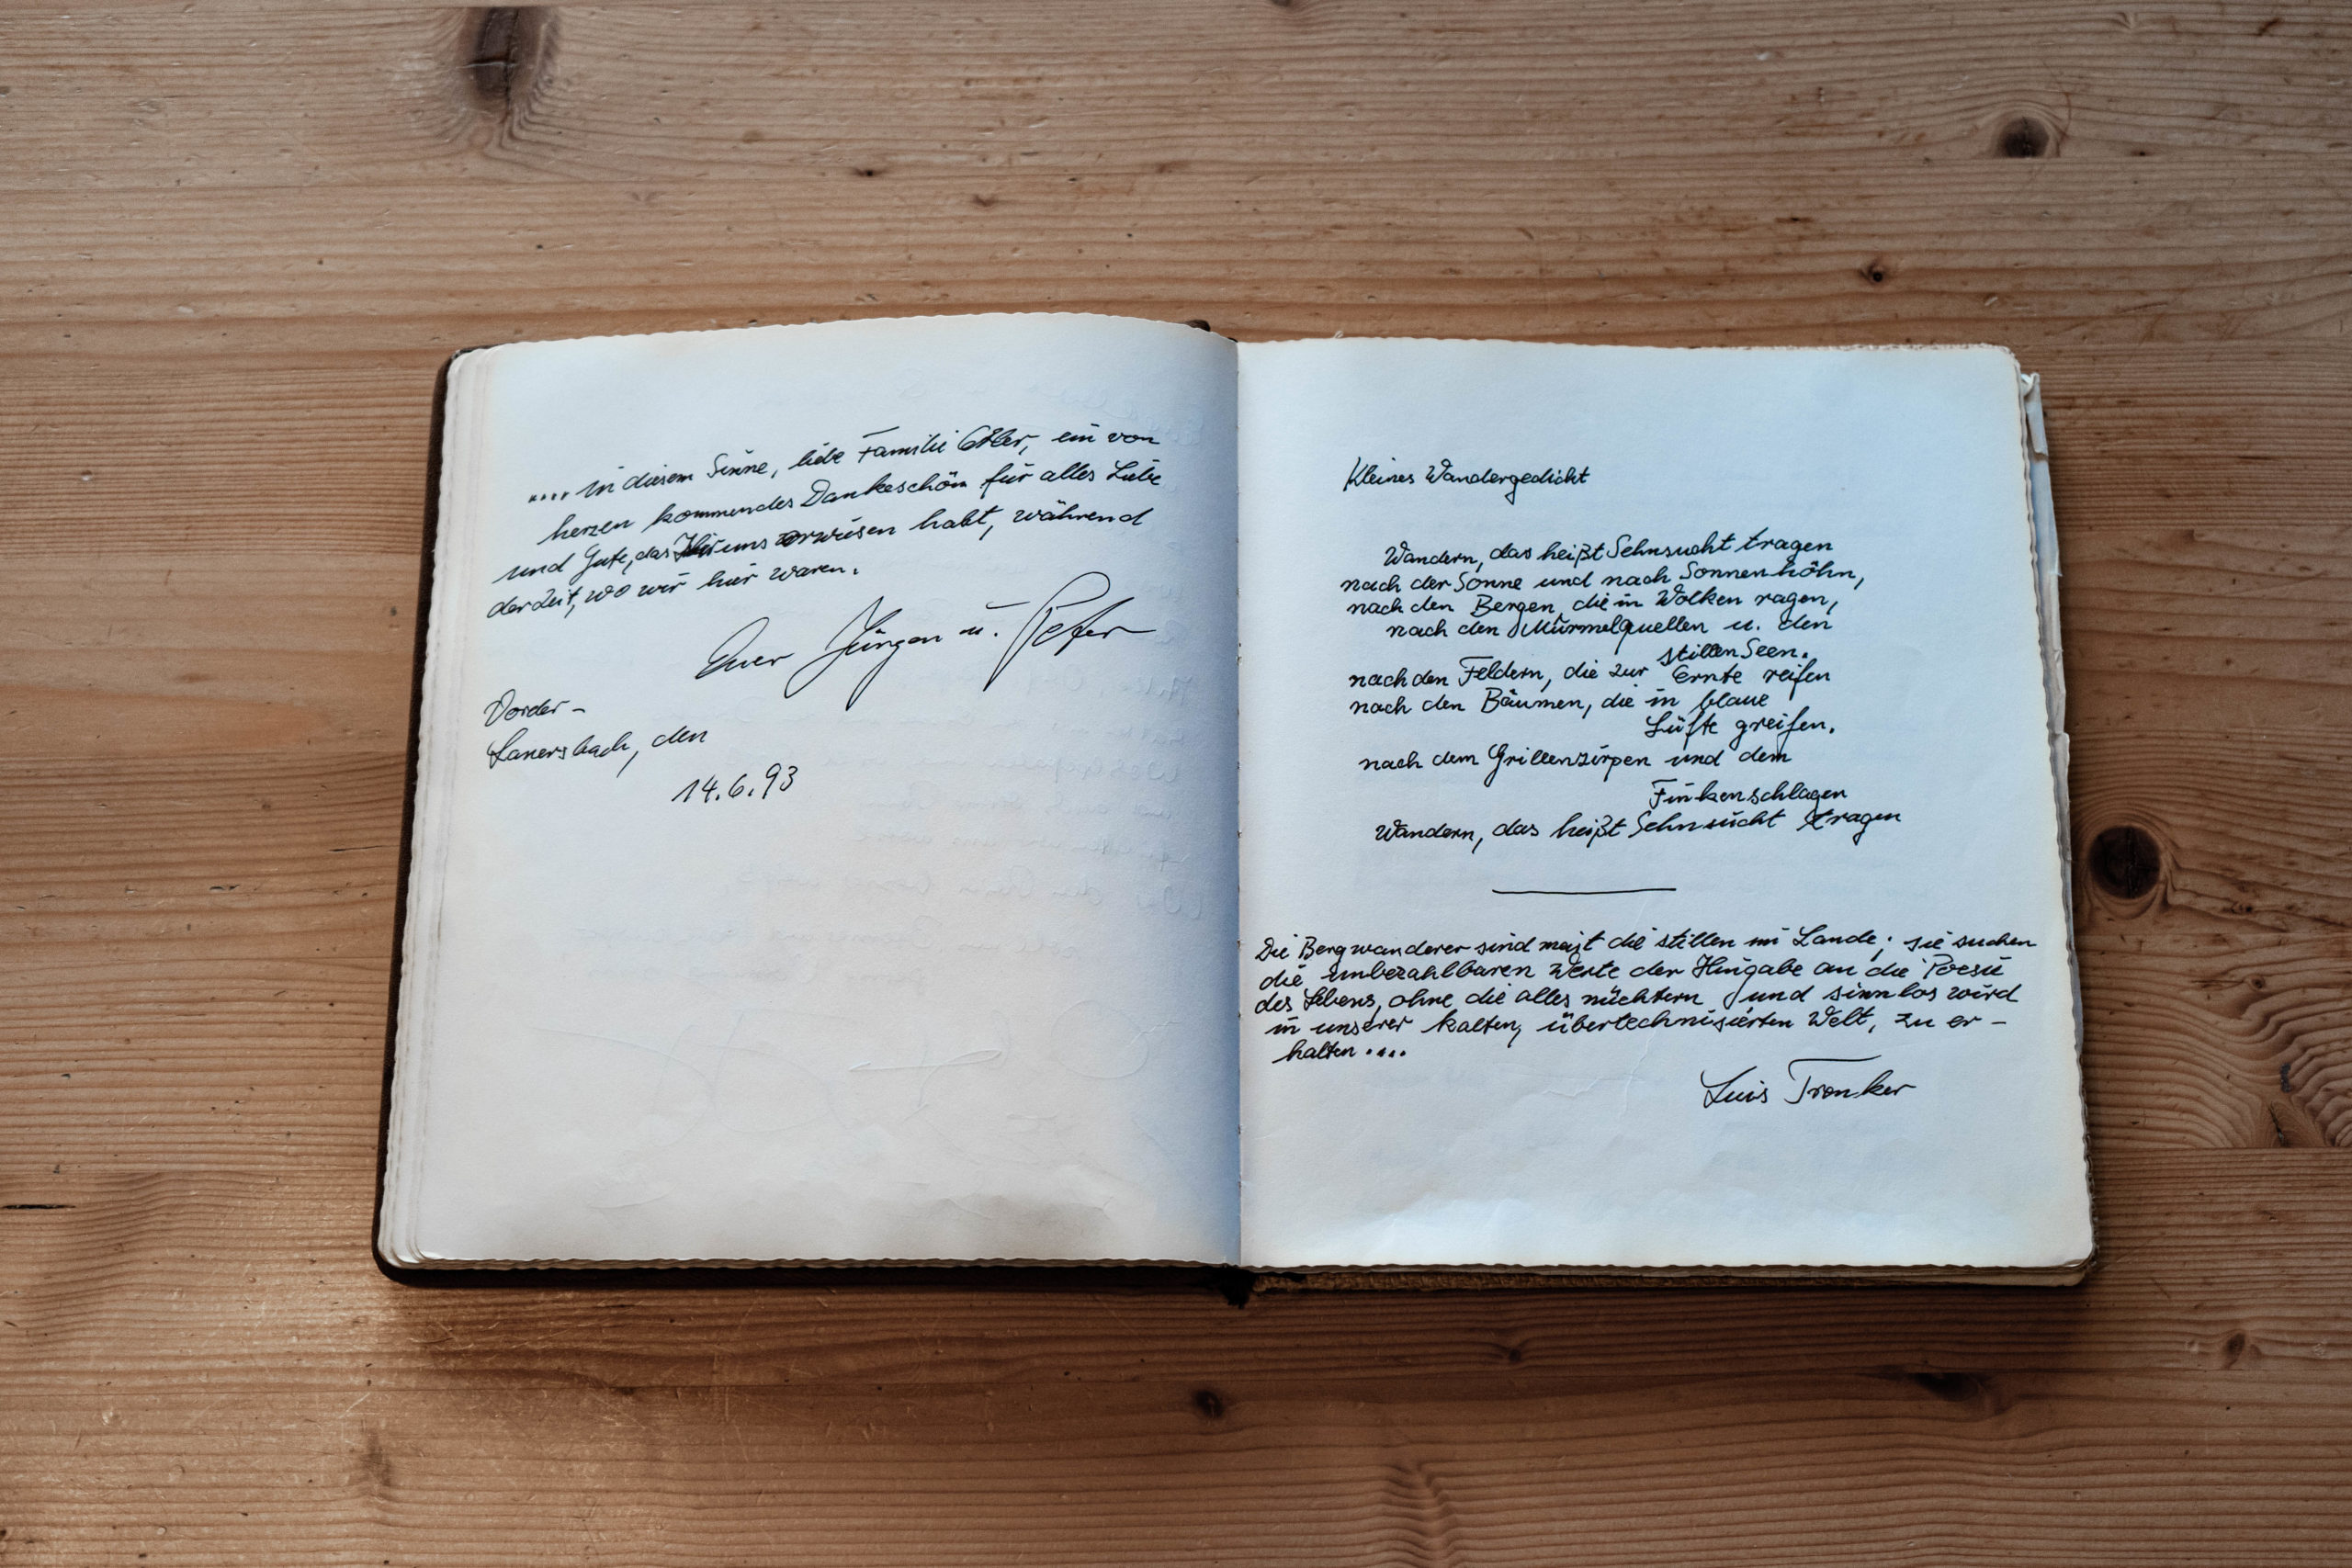 .... in diesem Sinne, liebe Familie Erler, ein von
herzen kommendes Dankeschön für alles Liebe
und Gute, das Ihr uns erwiesen habt, während
der Zeit, wo wir hier waren.
Euer Jürgen u. Peter
Vorder-
Lanersbach, den
14.6.93
Kleines Wandergedicht
Wandern, das heißt Sehnsucht tragen
nach der Sonne und nach Sonnenhöhn,
nach den Bergen, die in Wolken ragen,
nach den Murmelquellen u. den
stillen Seen.
nach den Feldern, die zur Ernte reifen
nach den Bäumen, die in blaue
Lüfte greifen.
nach dem Grillenzirpen und dem
Finkenschlagen
Wandern, das heißt Sehnsucht tragen
Die Bergwanderer sind meist die stillen im Lande; sie suchen
die unbezahlbaren Werte der Hingabe an die Poesie
des Lebens, ohne die alles nüchtern und sinnlos wird
in unserer kalten, übertechnisierten Welt, zu er-
halten....
Luis Trenker